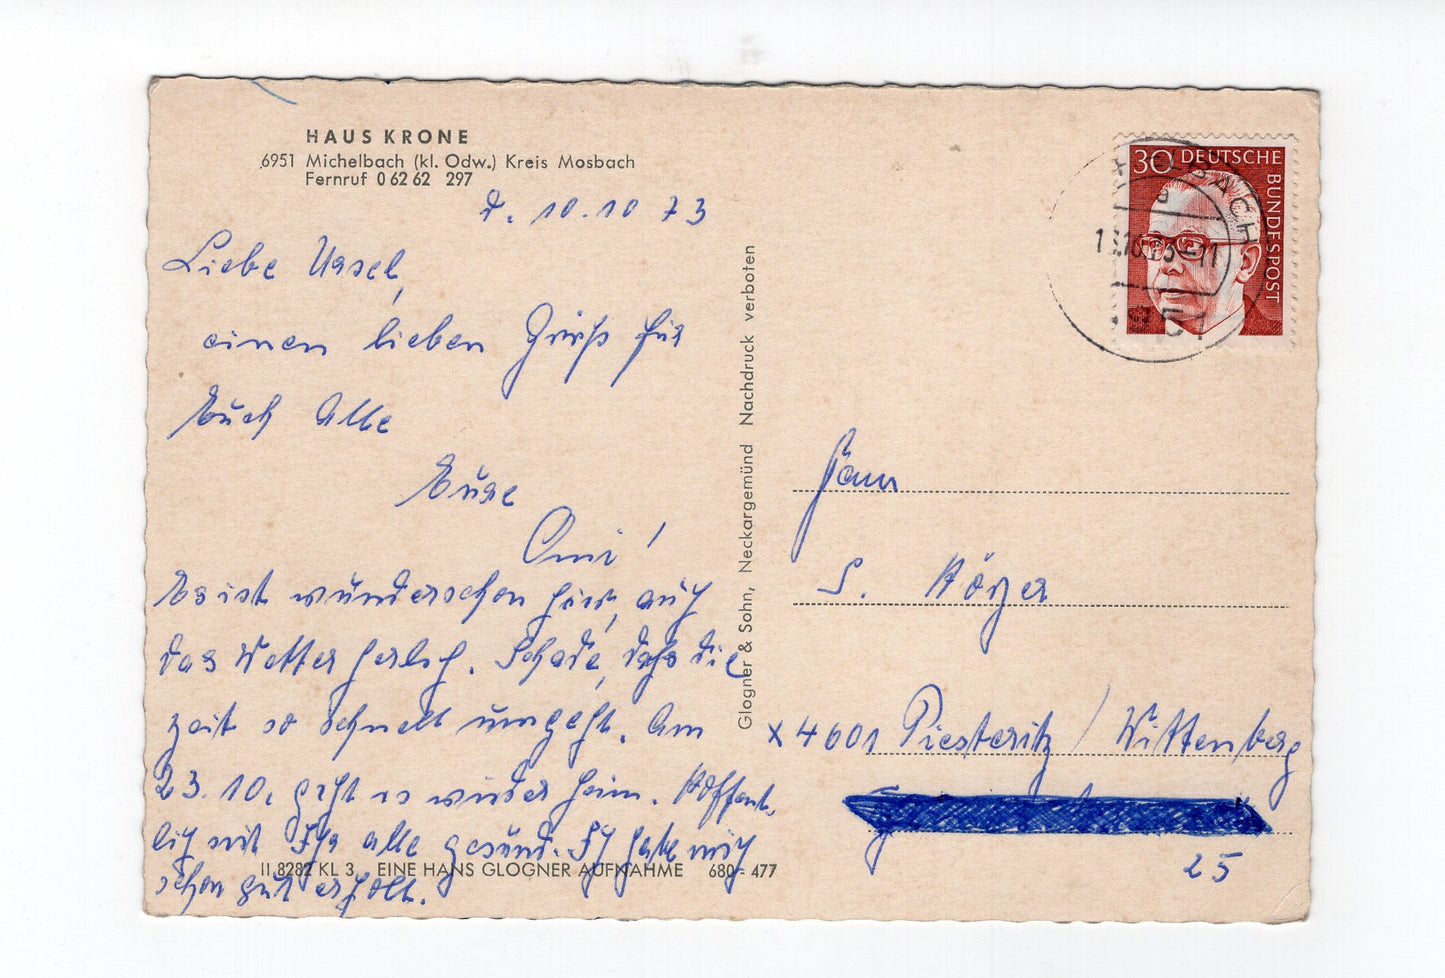 HAUS KRONE
6951 Michelbach (kl. Odw.) Kreis Mosbach
Fernruf 0 62 62 297
d. 10.10 73
Liebe Ursel,
einen lieben Gruß für
Euch Alle
Eure
Omi!
Es ist wunderschön hier, auch
das Wetter herlich. Schade, daß die
Zeit so schnell umgeht. Am
23.10. geht es wieder heim. Hoffent-
lich seid Ihr alle gesund. Ich habe mich
schon gut erholt.
II 8282 KL 3 EINE HANS GLOGNER AUFNAHME 680-477
Glogner & Sohn, Neckargemünd Nachdruck verboten
30 DEUTSCHE
BUNDESPOST
BACH
695
S.
x 4601 Piesteritz / Wittenberg
25